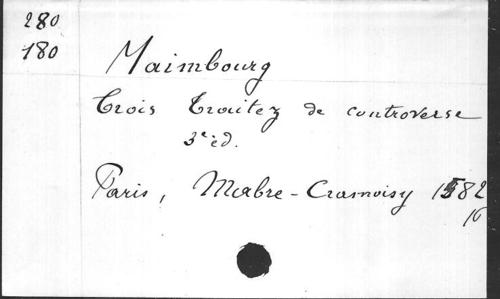 280
180
Maimbourg
Trois Traitez de controverse
3e éd.
Paris, Mabre-Cramoisy 1682